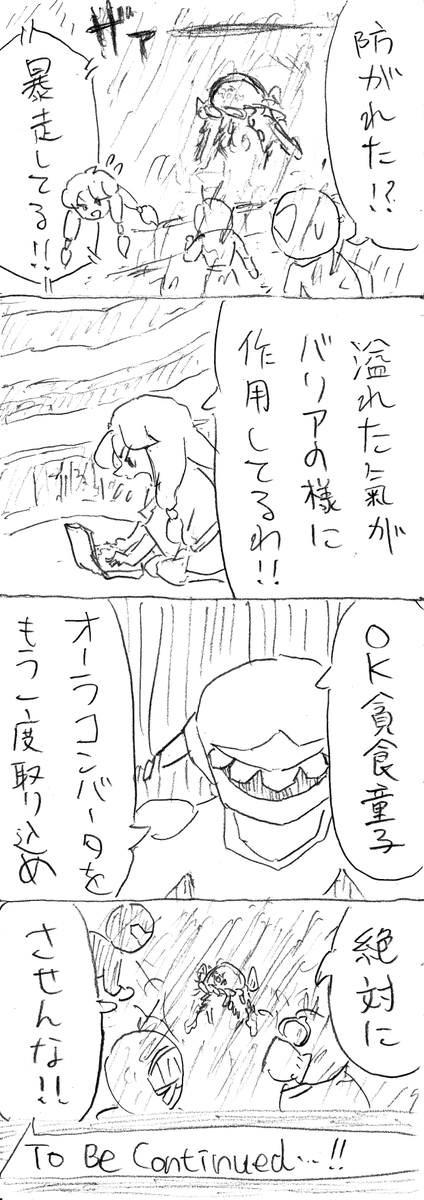 防がれた!?
ザァ
暴走してる!!
溢れた氣が
バリアの様に
作用してるわ!!
OK貪食童子
オーラコンバータを
もう一度取り込め
絶対に
させんな!!
To Be Continued...!!